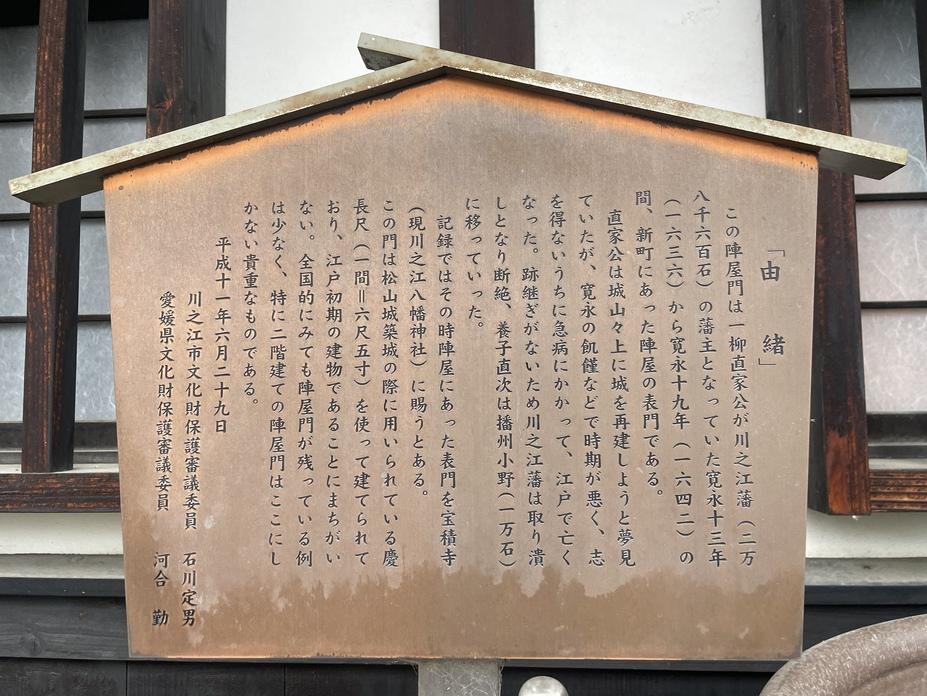 「由 緒」
この陣屋門は一柳直家公が川之江藩（二万
八千六百石）の藩主となっていた寛永十三年
（一六三六）から寛永十九年（一六四二）の
間、新町にあった陣屋の表門である。
直家公は城山々上に城を再建しようと夢見
ていたが、寛永の飢饉などで時期が悪く、志
を得ないうちに急病にかかって、江戸で亡く
なった。跡継ぎがないため川之江藩は取り潰
しとなり断絶、養子直次は播州小野（一万石）
に移っていった。
記録ではその時陣屋にあった表門を宝積寺
（現川之江八幡神社）に賜うとある。
この門は松山城築城の際に用いられている慶
長尺（一間＝六尺五寸）を使って建てられて
おり、江戸初期の建物であることにまちがい
ない。全国的にみても陣屋門が残っている例
は少なく、特に二階建ての陣屋門はここにし
かない貴重なものである。
平成十一年六月二十九日
川之江市文化財保護審議委員 石川定男
愛媛県文化財保護審議委員 河合 勤